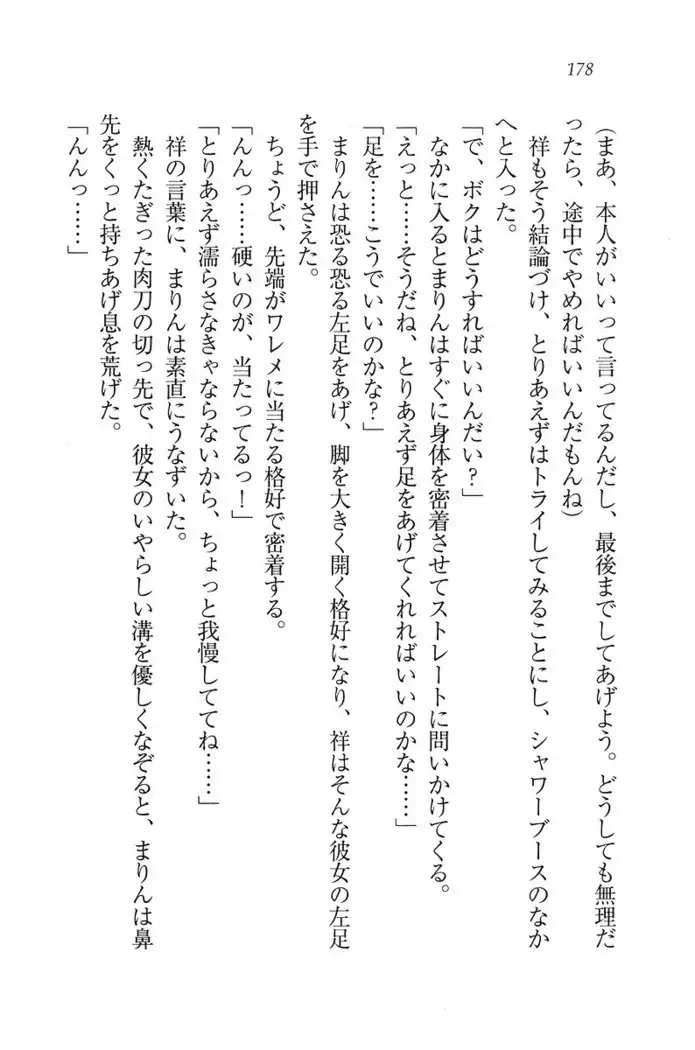 178
（まあ、本人がいいって言ってるんだし、最後までしてあげよう。どうしても無理だ
ったら、途中でやめればいいんだもんね）
祥もそう結論づけ、とりあえずはトライしてみることにし、シャワーブースのなか
へと入った。
「で、ボクはどうすればいいんだい？」
なかに入るとまりんはすぐに身体を密着させてストレートに問いかけてくる。
「えっと……そうだね、とりあえず足をあげてくれればいいのかな……」
「足を……こうでいいのかな？」
まりんは恐る恐る左足をあげ、脚を大きく開く格好になり、祥はそんな彼女の左足
を手で押さえた。
ちょうど、先端がワレメに当たる格好で密着する。
「んんっ……硬いのが、当たってるっ！」
「とりあえず濡らさなきゃならないから、ちょっと我慢しててね……」
祥の言葉に、まりんは素直にうなずいた。
熱くたぎった肉刀の切っ先で、彼女のいやらしい溝を優しくなぞると、まりんは鼻
先をくっと持ちあげ息を荒げた。
「んんっ……」